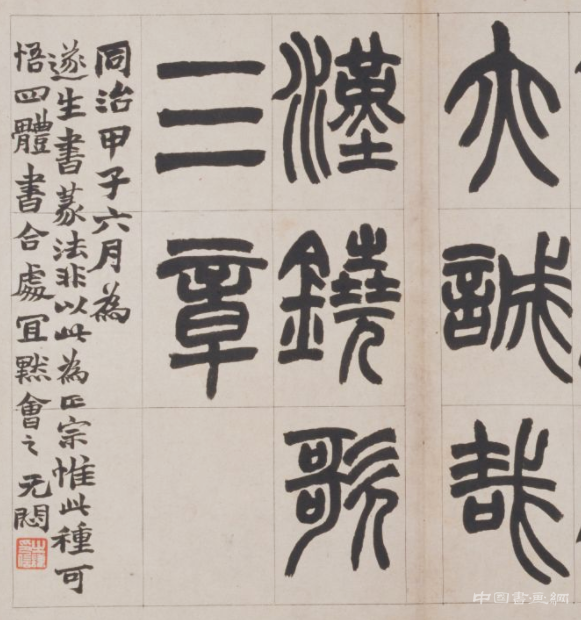 亦誠哉
漢鐃歌
三章
同治甲子六月為
遂生書篆法非以此為正宗惟此種可
悟四體書合處宜默會之 无悶
中国書画網